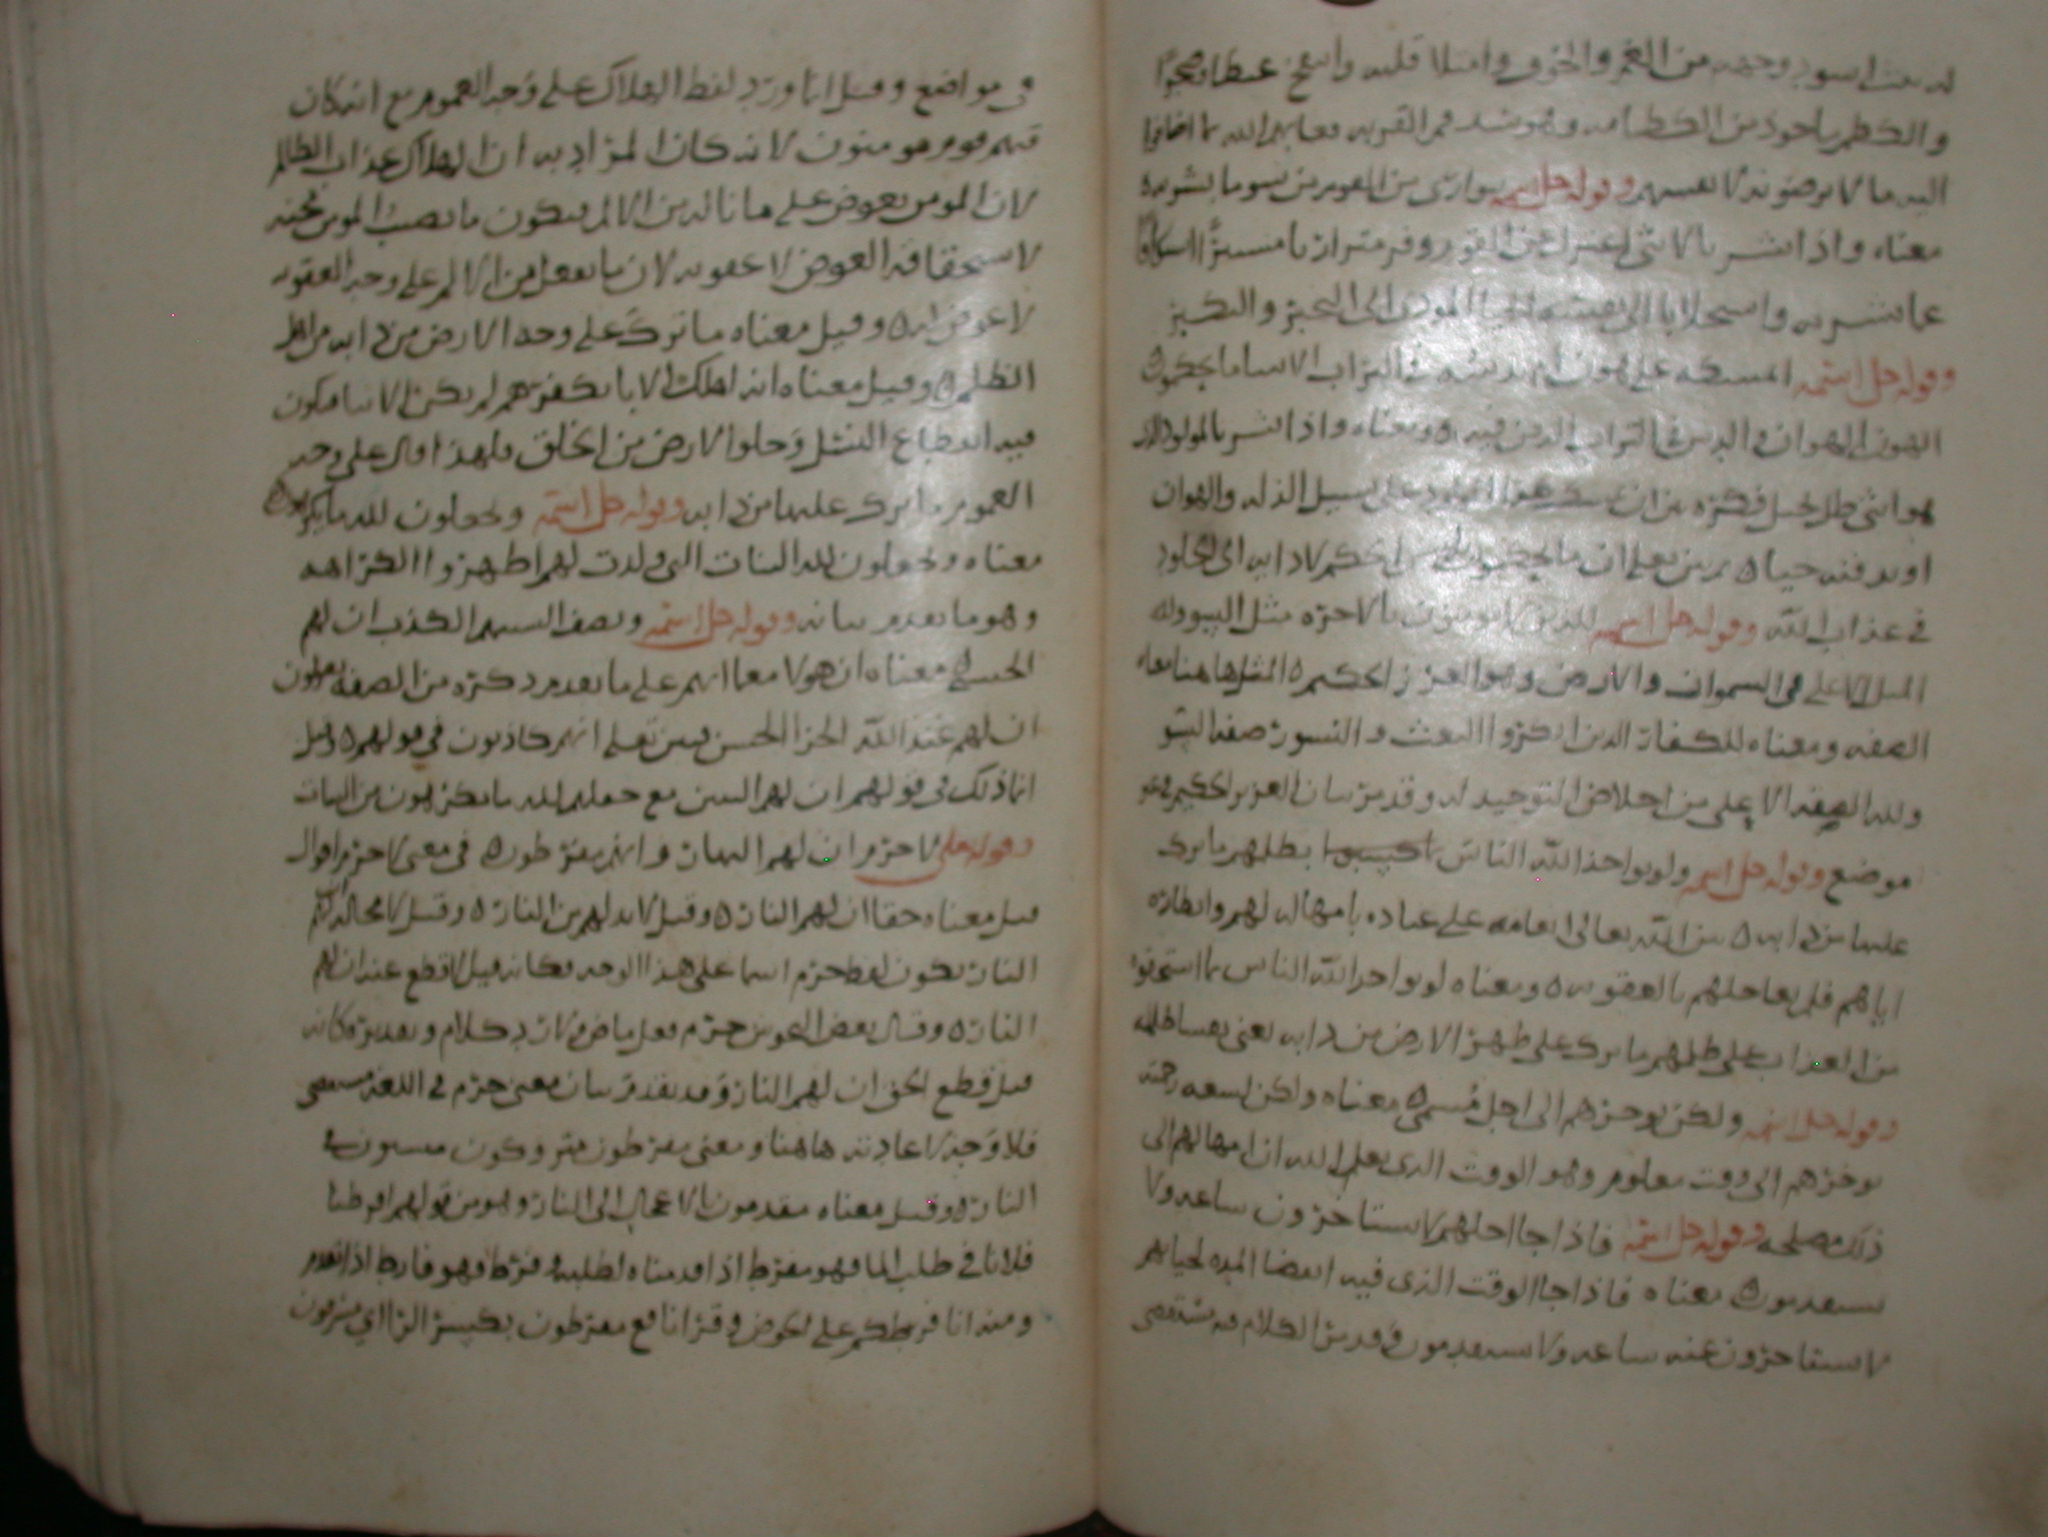 له بنت اسود وجهه من الغم والحزن وامتلا قلبه وانتفخ غيظا
والكظم ماخوذ من الكظامه وهو شد فم القربه فعابهم الله بما اضافوا
اليه ما لا يرضونه لانفسهم وقوله جل اسمه يتوارى من القوم من سوء ما بشر به
معناه واذا بشر بالانثى اعتزل عن القوم
عما بشر به
وقوله جل اسمه ايمسكه على هون ام يدسه في التراب الا ساء ما يحكمون
الهون الهوان والدس في التراب الدفن فيه ومعناه واذا بشر بالمولود
هو انثى ظل يجيل فكره بين ان على سبيل الذله والهوان
او يدفنه حيا ثم بين تعالى ان ما يحكمون
في عذاب الله وقوله جل اسمه للذين لا يومنون بالاخره مثل السوء ولله
المثل الاعلى في السموات والارض وهو العزيز الحكيم المثل هاهنا معناه
الصفه ومعناه للكفار الذين انكروا البعث والنشور صفه السو
ولله الصفه الاعلى من اخلاص التوحيد له وقد مر بيان العزيز الحكيم في غير
موضع وقوله جل اسمه ولو يواخذ الله الناس بظلمهم ما ترك
عليها من دابه بين الله تعالى انعامه على عباده بامهاله لهم وانظاره
اياهم فلم يعاجلهم بالعقوبه ومعناه لو يواخذ الله الناس بما استحقوه
من العذاب على ظلمهم ما ترك على ظهر الارض من دابه يعني نفسا ظالمه
وقوله جل اسمه ولكن يوخرهم الى اجل مسمى معناه ولكن لسعه رحمته
يوخرهم الى وقت معلوم وهو الوقت الذي يعلم الله ان امهالهم الى
ذلك مصلحه وقوله جل اسمه فاذا جا اجلهم لا يستاخرون ساعه ولا
يستقدمون معناه فاذا جا الوقت الذي فيه انقضا المده لحياتهم
لا يستاخرون عنه ساعه ولا يستقدمون وقد مر الكلام فيه مستقصى
في مواضع وقيل انما ورد لفظ الهلاك على وجه العموم مع انه كان
فيهم قوم مومنون لانه كان المراد به ان الهلاك عذاب الظالم
لان المومن يعوض على ما ناله من الالم فيكون ما يصيب المومن محنه
لاستحقاقه العوض لا عقوبه لان ما يفعل من الالم على وجه العقوبه
لا عوض له وقيل معناه ما ترك على وجه الارض من دابه من اهل
الظلم وقيل معناه انه لو اهلك الابا بكفرهم لم يكن الابنا فيكون
فيه انقطاع النسل وخلو الارض من الخلق فلهذا قال على وجه
العموم ما ترك عليها من دابه وقوله جل اسمه ويجعلون لله ما يكرهون
معناه ويجعلون لله البنات التي ولدت لهم اظهروا الكراهه
وهو ما تقدم بيانه وقوله جل اسمه وتصف السنتهم الكذب ان لهم
الحسنى معناه ان هولا مع ما انهم على ما تقدم ذكره من الصفه يقولون
ان لهم عند الله الجزا الحسن فبين تعالى انهم كاذبون في قولهم وقيل
انما ذلك في قولهم ان لهم البنين مع جعلهم لله ما يكرهون من البنات
وقوله تعالى لا جرم ان لهم النار وانهم مفرطون في معنى لا جرم اقوال
قيل معناه حقا ان لهم النار وقيل لا بد لهم من النار وقيل لا محاله لهم
النار يكون لفظ جرم اسما على هذا الوجه فكانه قيل لا قطع عند ان لهم
النار وقال بعض النحويين جرم فعل ماض رد كلام وتقديره كانه
قيل قطع الحق ان لهم النار وقد تقدم بيان معنى جرم في اللغه مستقصى
فلا وجه لاعادته هاهنا ومعنى مفرطون متروكون منسيون في
النار وقيل معناه مقدمون بالاعجال الى النار وهو من قولهم افرطنا
فلانا في طلب الما فهو مفرط اذا قدمناه لطلبه وفرط فهو فارط اذا تقدم
ومنه انا فرطكم على الحوض وقرا نافع مفرطون بكسر الرا اي مسرفون